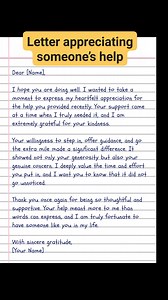 Letter appreciating
someone's help
Dear [Name],
I hope you are doing well. I wanted to take a
moment to express my heartfelt appreciation for
the help you provided recently. Your support came
at a time when I truly needed it, and I am
extremely grateful for your kindness.
Your willingness to step in, offer guidance, and go
the extra mile made a significant difference. It
showed not only your generosity but also your
genuine concern. I deeply value the time and effort
you put in, and I want you to know that it did not
go unnoticed.
Thank you once again for being so thoughtful and
supportive. Your help meant more to me than
words can express, and I am truly fortunate to
have someone like you in my life.
With sincere gratitude,
[Your Name]